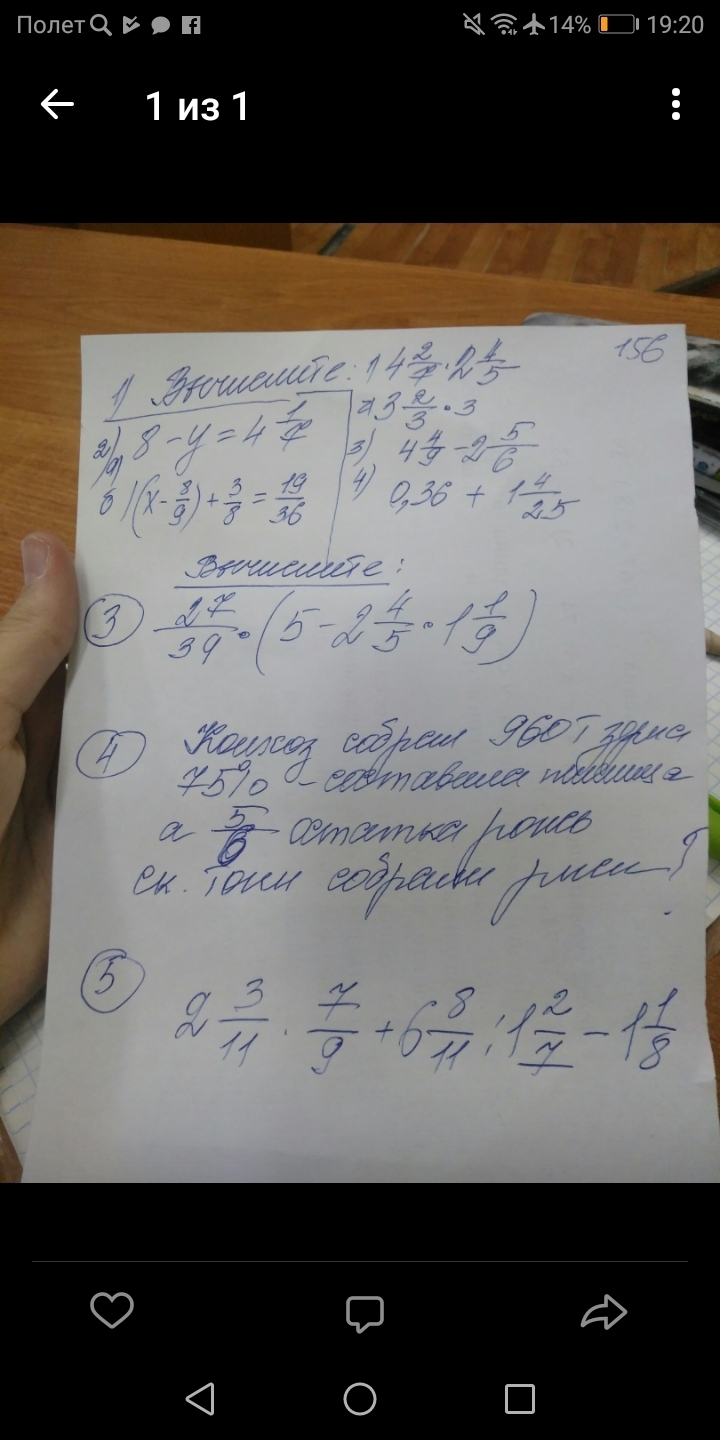 Полет 14% 19:20
1 из 1
156
1) Вычислите: 1 4 2/7 · 2 4/5
2) 3 2/3 · 3
3) 4 4/9 - 2 5/6
4) 0,36 + 1 4/25
2) а) 8 - y = 4 1/7
б) (x - 8/9) + 3/8 = 19/36
Вычислите:
3 27/39 · (5 - 2 4/5 · 1 1/9)
4 Колхоз собрал 960 т
75% - составила пшеница
а 5/6 остатка рожь
ск. тонн собрали ржи ?
5 2 3/11 · 7/9 + 6 8/11 : 1 2/7 - 1 1/8